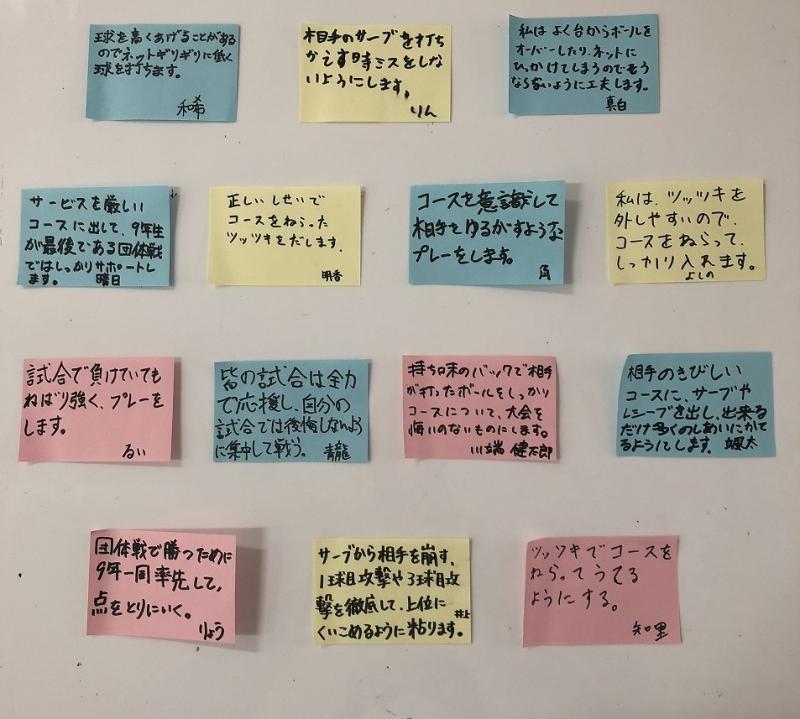 球を高くあげることがある
のでネットギリギリに低く
球を打ちます。
和希
相手のサーブを打ち
かえす時ミスをしな
いようにします。
りん
私はよく台からボールを
オーバーしたり、ネットに
ひっかけてしまうのでそう
ならないように工夫します。
真白
サービスを厳しい
コースに出して、9年生
が最後である団体戦
ではしっかりサポートし
ます。 曜日
正しいしせいで
コースをねらった
ツッツキをだします。
明香
コースを意識して
相手をゆるがすような
プレーをします。
眞
私は、ツッツキを
外しやすいので、
コースをねらって、
しっかり入れます。
よしの
試合で負けていても
ねばり強く、プレーを
します。
るい
皆の試合は全力
で応援し、自分の
試合では後悔しないよう
に集中して戦う。 青龍
持ち味のバックで相手
が打ったボールをしっかり
コースについて、大会を
悔いのないものにします。
川端 健太郎
相手のきびしい
コースに、サーブや
レシーブを出し、出来る
だけ多くのしあいにかて
るようにします。 颯太
団体戦で勝つために
9年一同率先して、
点をとりにいく。
りょう
サーブから相手を崩す、
1球目攻撃や3球目攻
撃を徹底して、上位に
くいこめるように粘ります。 井上
ツッツキでコースを
ねらってうてる
ようにする。
知里